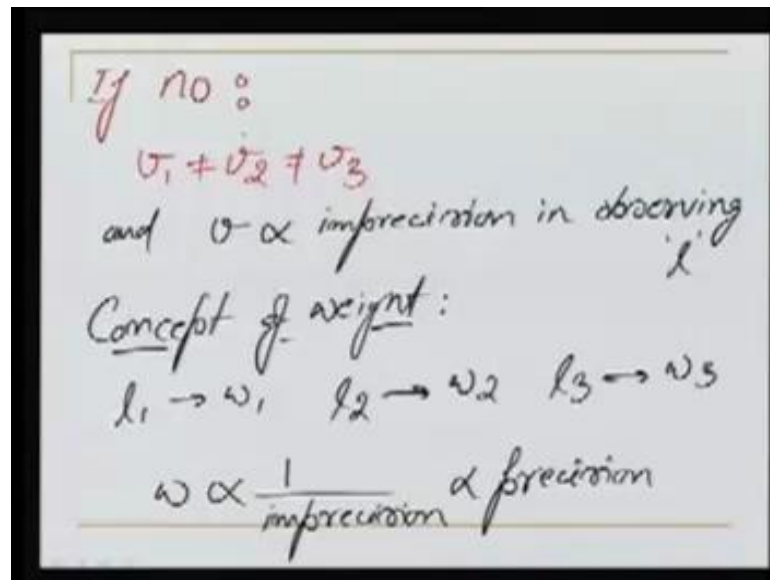 If no :
v₁ ≠ v₂ ≠ v₃
and v ∝ imprecision in observing
'l'
Concept of weight :
l₁ → w₁ l₂ → w₂ l₃ → w₃
w ∝ 1/imprecision ∝ precision